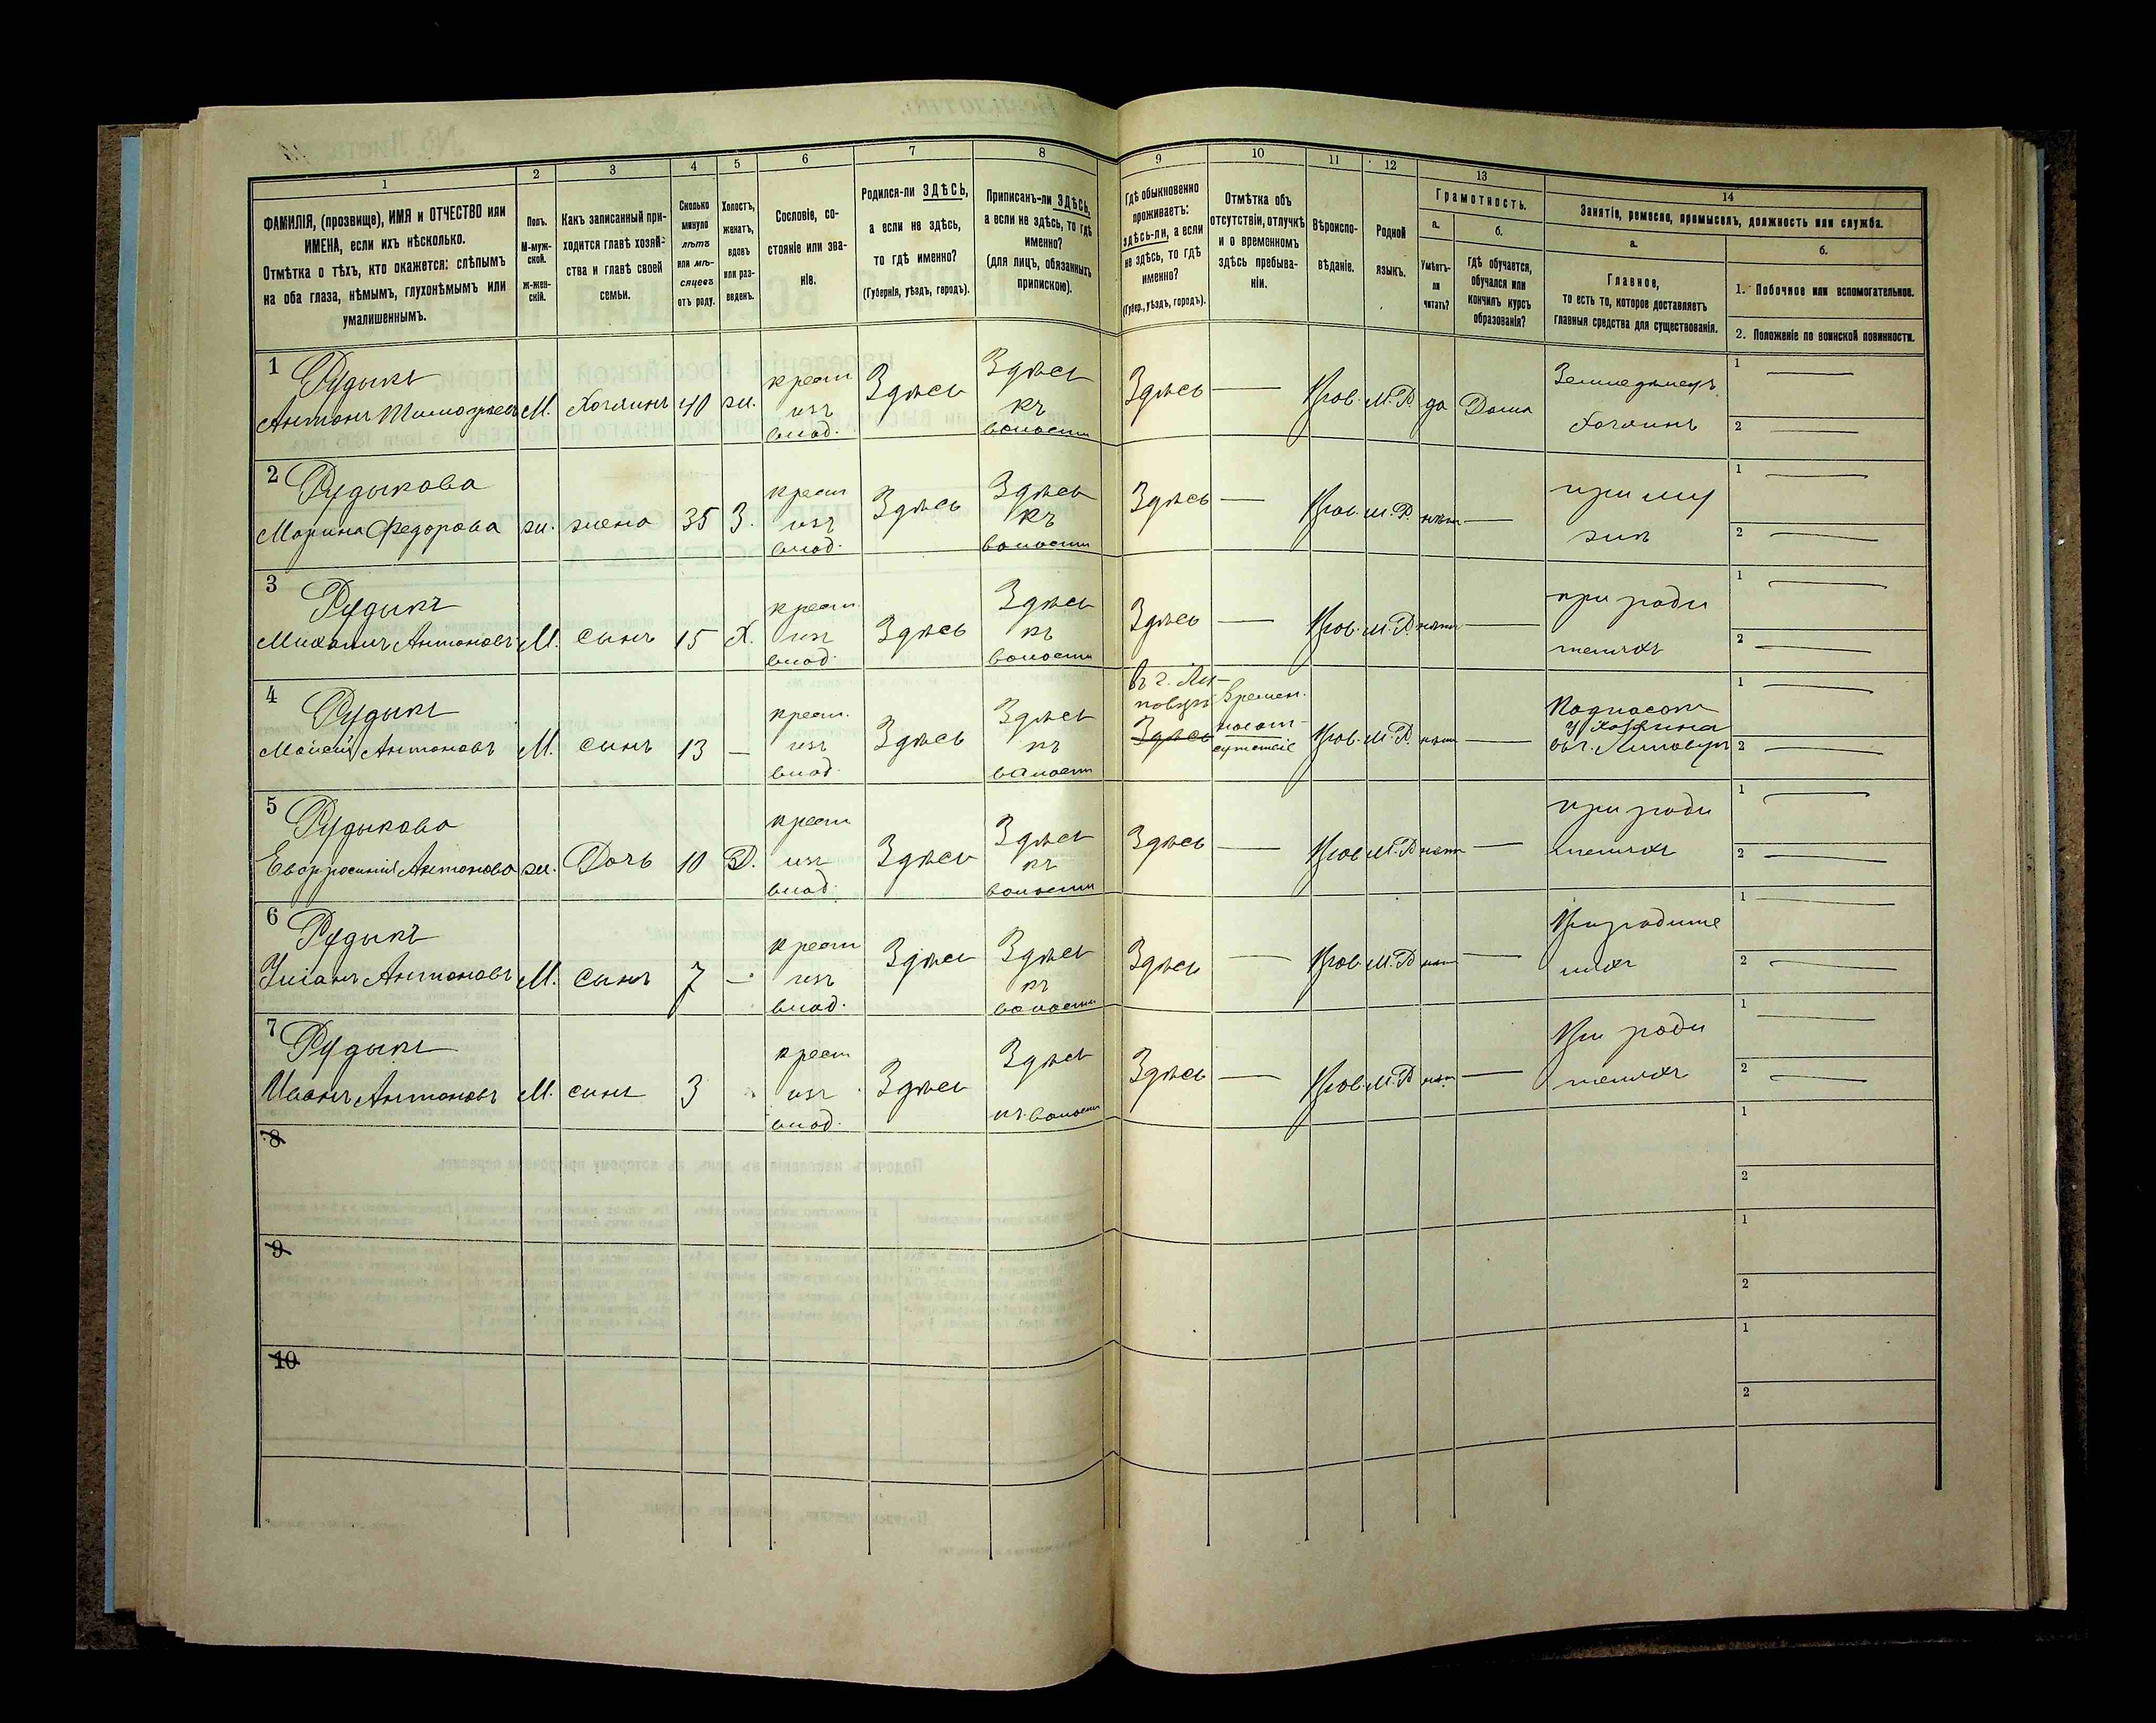 1
2
3
4
5
6
7
8
9
10
11
12
13
14
ФАМИЛІЯ, (прозвище), ИМЯ и ОТЧЕСТВО или
ИМЕНА, если ихъ нѣсколько.
Отмѣтка о тѣхъ, кто окажется: слѣпымъ
на оба глаза, нѣмымъ, глухонѣмымъ или
умалишеннымъ.
Полъ.
М-муж-
ской.
Ж-жен-
скій.
Какъ записанный при-
ходится главѣ хозяй-
ства и главѣ своей
семьи.
Сколько
минуло
лѣтъ
или мѣ-
сяцевъ
отъ роду.
Холостъ,
женатъ,
вдовъ
или раз-
веденъ.
Сословіе, со-
стояніе или зва-
ніе.
Родился-ли ЗДѢСЬ,
а если не здѣсь,
то гдѣ именно?
(Губернія, уѣздъ, городъ).
Приписанъ-ли ЗДѢСЬ,
а если не здѣсь, то гдѣ
именно?
(для лицъ, обязанныхъ
припискою).
Гдѣ обыкновенно
проживаетъ:
здѣсь-ли, а если
не здѣсь, то гдѣ
именно?
(Губер., уѣздъ, городъ).
Отмѣтка объ
отсутствіи, отлучкѣ
и о временномъ
здѣсь пребыва-
ніи.
Вѣроиспо-
вѣданіе.
Родной
языкъ.
Грамотность.
а.
Умѣетъ-
ли
читать?
б.
Гдѣ обучается,
обучался или
кончилъ курсъ
образованія?
Занятіе, ремесло, промыселъ, должность или служба.
а.
Главное,
то есть то, которое доставляетъ
главныя средства для существованія.
б.
1. Побочное или вспомогательное.
2. Положеніе по воинской повинности.
1
Рудыкъ
Антонъ Тимофеевъ М. Хозяинъ 40 ж.
крест
изъ
влад.
Здѣсь
Здѣсь
къ
волости
Здѣсь — Прав. М.Р. да Дома
Земледѣлецъ
Хозяинъ
1 —
2 —
2
Рудыкова
Марина Федорова ж. жена 35 З.
крест
изъ
влад.
Здѣсь
Здѣсь
къ
волости
Здѣсь — Прав. М.Р. нѣтъ —
при му
жѣ
1 —
2 —
3
Рудыкъ
Михаилъ Антоновъ М. сынъ 15 Х.
крест.
изъ
влад.
Здѣсь
Здѣсь
къ
волости
Здѣсь — Прав. М.Р. нѣтъ —
при роди
теляхъ
1 —
2 —
4
Рудыкъ
Мойсей Антоновъ М. сынъ 13 —
крест.
изъ
влад.
Здѣсь
Здѣсь
къ
волости
Здѣсь
Времен.
Прав. М.Р. нѣтъ —
у хозяина
1 —
2 —
5
Рудыкова
Евфросинія Антонова ж. Дочь 10 Д.
крест
изъ
влад.
Здѣсь
Здѣсь
къ
волости
Здѣсь — Прав. М.Р. нѣтъ —
при роди
теляхъ
1 —
2 —
6
Рудыкъ
Уліанъ Антоновъ М. сынъ 7 —
крест
изъ
влад.
Здѣсь
Здѣсь
къ
волости
Здѣсь — Прав. М.Р. нѣтъ —
При родите
ляхъ
1 —
2 —
7
Рудыкъ
Иванъ Антоновъ М. сынъ 3
крест
изъ
влад.
Здѣсь
Здѣсь
къ волости
Здѣсь — Прав. М.Р. нѣтъ —
При роди
теляхъ
1 —
2 —
8
1
2
9
1
2
10
1
2